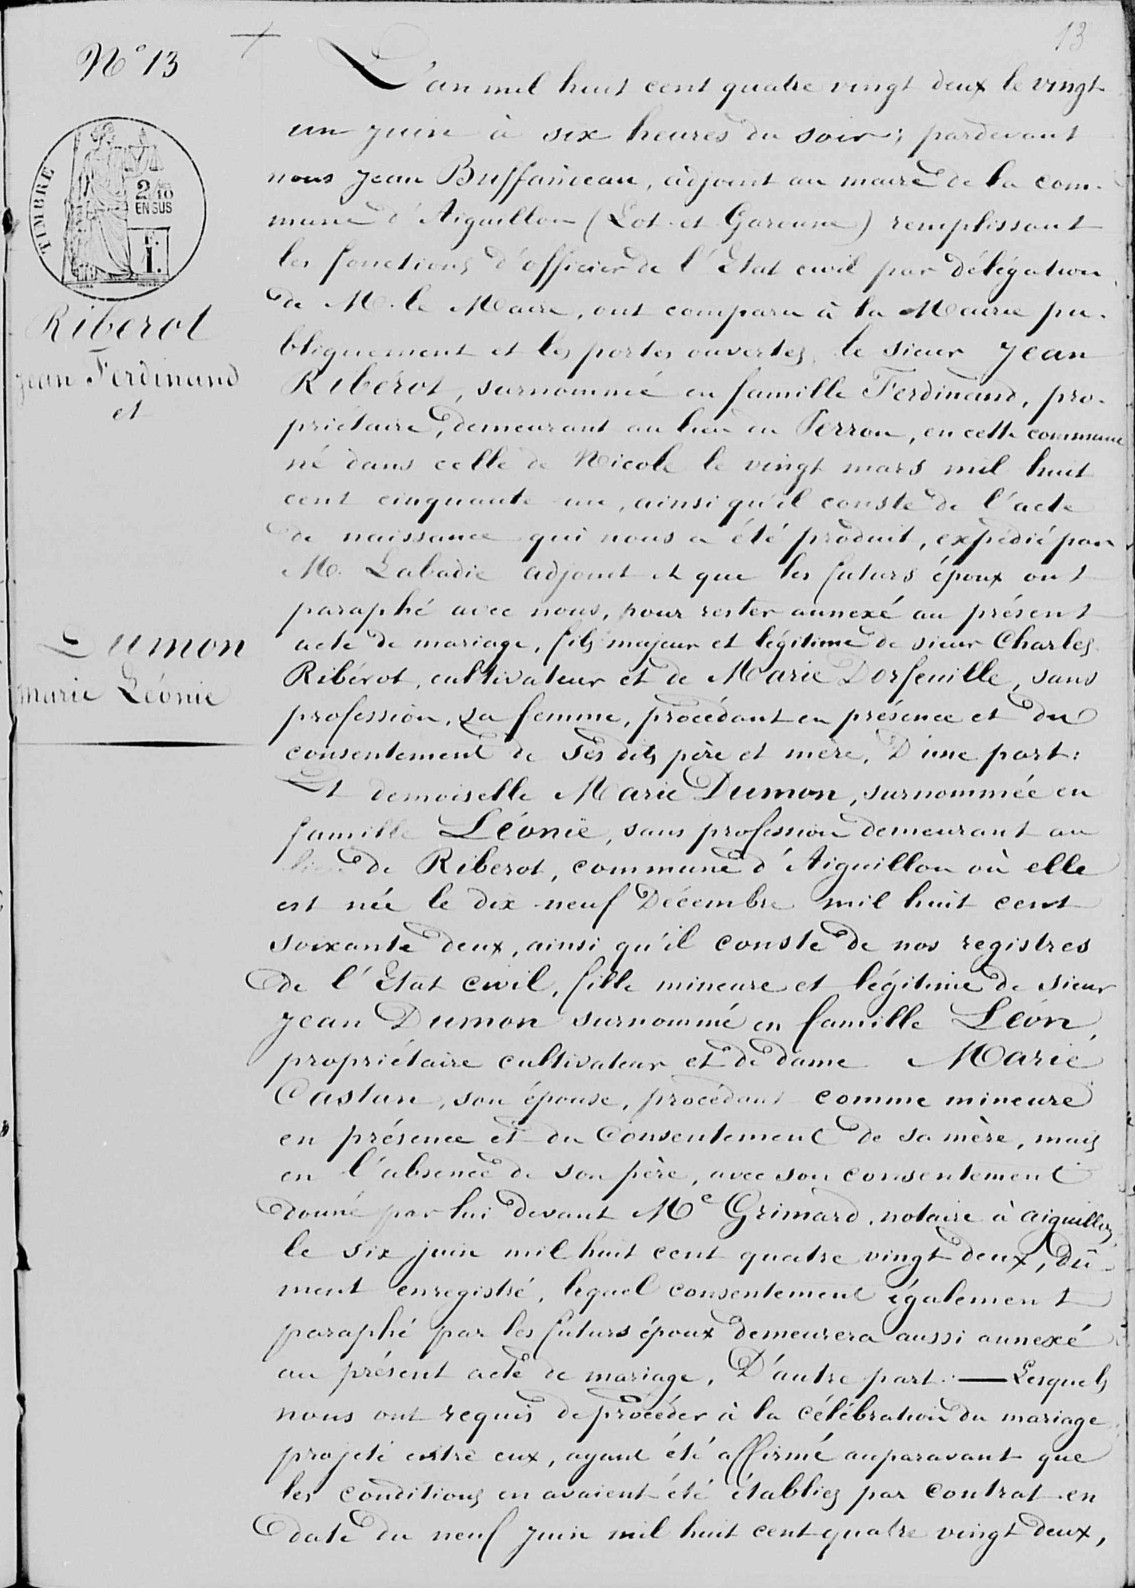 13
N° 13
TIMBRE
2/10
EN SUS
F.
1.
Riberot
Jean Ferdinand
et
Dumon
marie Léonie
L'an mil huit cent quatre vingt deux le vingt
un juin à six heures du soir; pardevant
nous Jean Buffaineau, adjoint au maire de la com-
mune d'Aiguillon (Lot et Garonne) remplissant
les fonctions d'officier de l'Etat civil par délégation
de M. le Maire, ont comparu à la Mairie pu-
bliquement et les portes ouvertes, le sieur Jean
Ribérot, surnommé en famille Ferdinand, pro-
priétaire, demeurant au lieu du Perron, en cette commune
né dans celle de Nicole le vingt mars mil huit
cent cinquante un, ainsi qu'il conste de l'acte
de naissance qui nous a été produit, expédié par
M. Labadie adjoint et que les futurs époux ont
paraphé avec nous, pour rester annexé au présent
acte de mariage, fils majeur et légitime de sieur Charles
Ribérot, cultivateur et de Marie Dorfeuille, sans
profession, sa femme, procédant en présence et du
consentement de ses dits père et mère, D'une part:
Et demoiselle Marie Dumon, surnommée en
famille Léonie, sans profession demeurant au
lieu de Riberot, commune d'Aiguillon où elle
est née le dix neuf Décembre mil huit cent
soixante deux, ainsi qu'il conste de nos registres
de l'Etat civil, fille mineure et légitime de sieur
Jean Dumon surnommé en famille Léon,
propriétaire cultivateur et de dame Marie
Castan, son épouse, procédant comme mineure
en présence et du Consentement de sa mère, mais
en l'absence de son père, avec son consentement
donné par lui devant Me Grimard, notaire à aiguillon,
le six juin mil huit cent quatre vingt deux, dû-
ment enregistré, lequel consentement également
paraphé par les futurs époux demeurera aussi annexé
au présent acte de mariage, D'autre part. — Lesquels
nous ont requis de procéder à la célébration du mariage
projeté entre eux, ayant été affirmé auparavant que
les conditions en avaient été établies par contrat en
date du neuf juin mil huit cent quatre vingt deux,